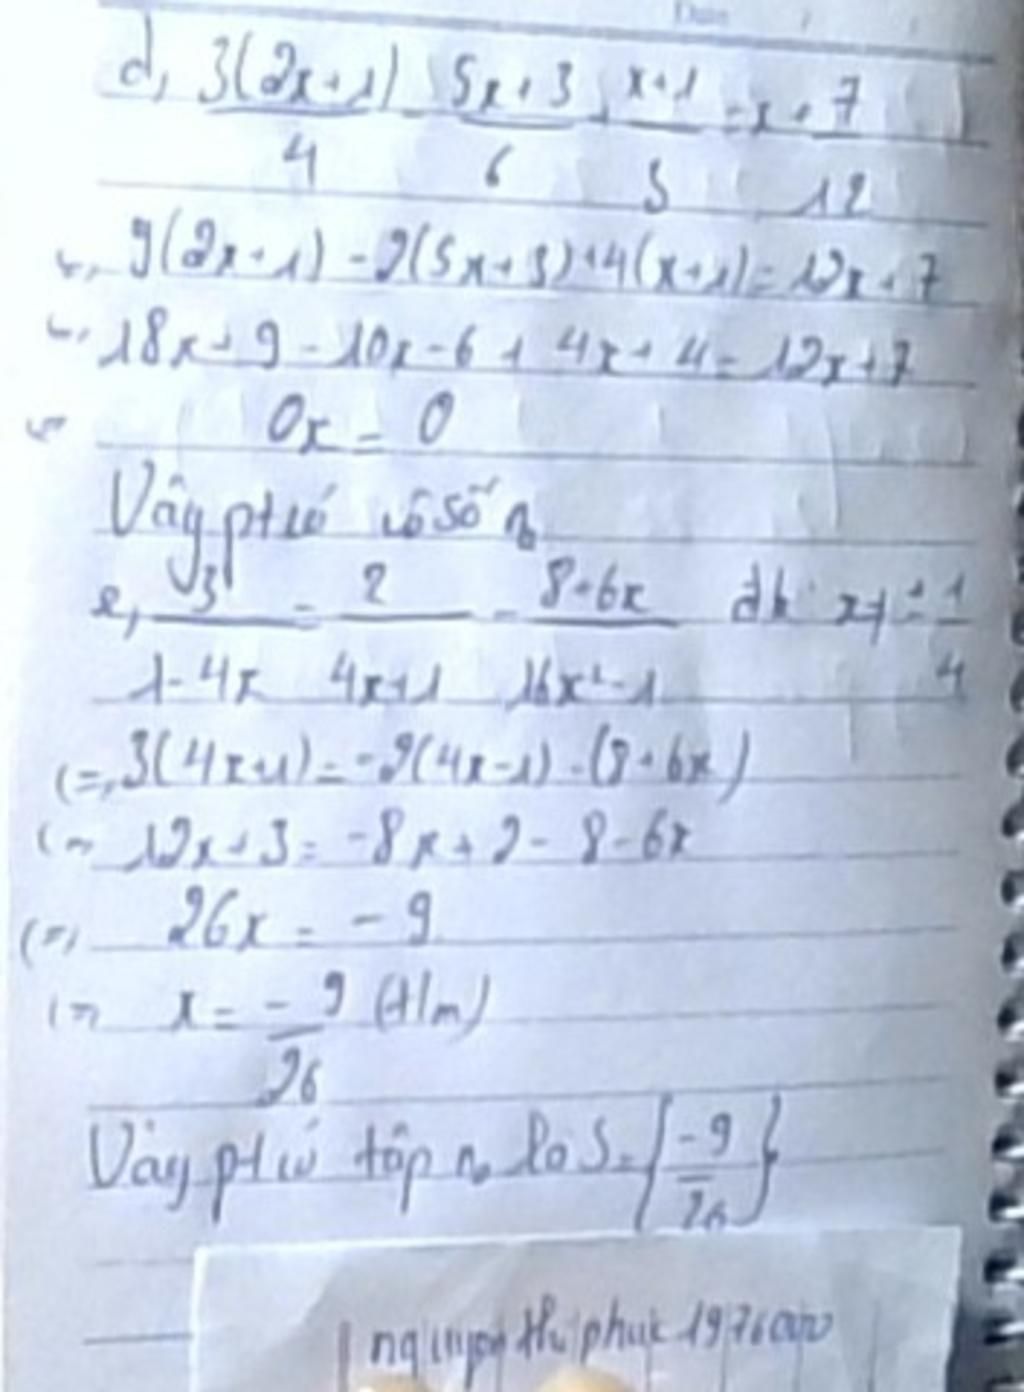 Date / /
d, 3(2x+1)/4 - 5x+3/6 + x+1/3 = x + 7/12
<=> 9(2x+1) - 2(5x+3) + 4(x+1) = 12x + 7
<=> 18x + 9 - 10x - 6 + 4x + 4 = 12x + 7
<=> 0x = 0
Vậy pt có vô số no
e, 3/1-4x = 2/4x+1 - 8+6x/16x²-1 đk: x≠ ± 1/4
<=> 3(4x+1) = -2(4x-1) - (8+6x)
<=> 12x + 3 = -8x + 2 - 8 - 6x
<=> 26x = -9
<=> x = -9/26 (t/m)
Vậy pt có tập no là S = {-9/26}
nguyen thi phuc 1976000